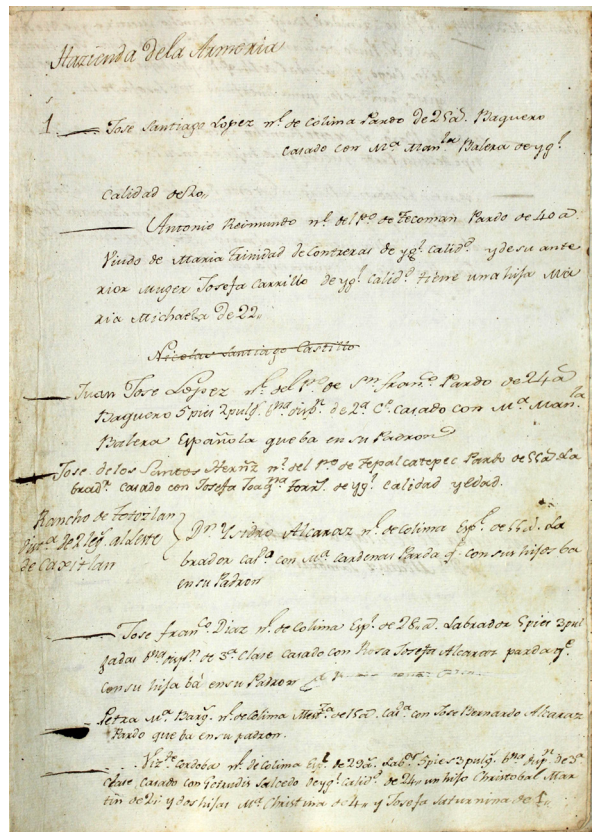 Hazienda dela Armonia
1 Jose Santiago Lopez nl. de Colima Pardo de 25 a. Baquero
casado con Ma. Manla Balera de ygl.
Calidad de 20,,
Antonio Reimundo nl. del Po. de Tecoman Pardo de 40 a.
Viudo de Maria Trinidad de Contreras de ygl. calidd. y de su ante
rior Muger Josefa Carrillo de ygl. calidd. tiene una hija Ma
ria Michaela de 22,,
Nicolas Santiago Castillo
Juan Jose Lopez nl. del Po. de Sn. Franco. Pardo de 24 a
Baquero 5 pies 2 pulgs. de 2a. Ce. casado con Ma. Manla
Balera Española que ba en su Padron
Jose delos Santos Hernz nl. del Po. de Tepalcatepec Pardo de 55 a La
brador. casado con Josefa Joaqna de ygl. calidad y edad.
Rancho de Tetozlan
de 2 legs. al deste
de Caxitlan
Dn. Ysidro Alcaraz nl. de Colima Espl. de 55 a. La
brador casdo. con Ma. Cardenas Parda q. con sus hijos ba
en su Padron
Jose Franco. Diaz nl. de Colima Espl. de 28 a. Labrador 5 pies 3 pul
gadas de 3a. Clase casado con Rosa Josefa Alcaraz parda qe.
con su hija ba en su Padron
Petra Ma. nl. de Colima de 15 a. casda. con Jose Bernardo Alcaraz
Pardo que ba en su padron.
Cordoba nl. de Colima Espl. de 29 a. Labor. 5 pies 3 pulgs. de 3a.
Clase casado con Getrudis Salcedo de ygl. calidd. de 24,, un hijo Christobal Mar
tin de 2 y dos hijas Ma. Christina de 4,, y Josefa Saturnina de 1,,